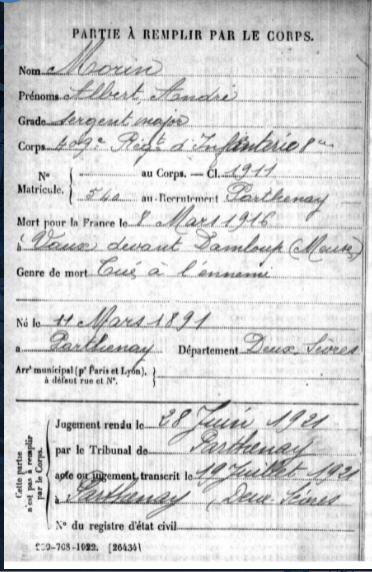 PARTIE À REMPLIR PAR LE CORPS.
Nom Morin
Prénoms Albert André
Grade Sergent major
Corps 409e Régt d'Infanterie 8e
N° au Corps. — Cl. 1911
Matricule. 540 au Recrutement Parthenay
Mort pour la France le 8 Mars 1916
à Vaux devant Damloup (Meuse)
Genre de mort Tué à l'ennemi
Né le 11 Mars 1891
à Parthenay Département Deux Sèvres
Arrt municipal (pr Paris et Lyon),
à défaut rue et N°.
Cette partie
n'est pas à remplir
par le Corps.
Jugement rendu le 28 Juin 1921
par le Tribunal de Parthenay
acte ou jugement transcrit le 19 Juillet 1921
à Parthenay (Deux Sèvres
N° du registre d'état civil
-708-1922. [26434]